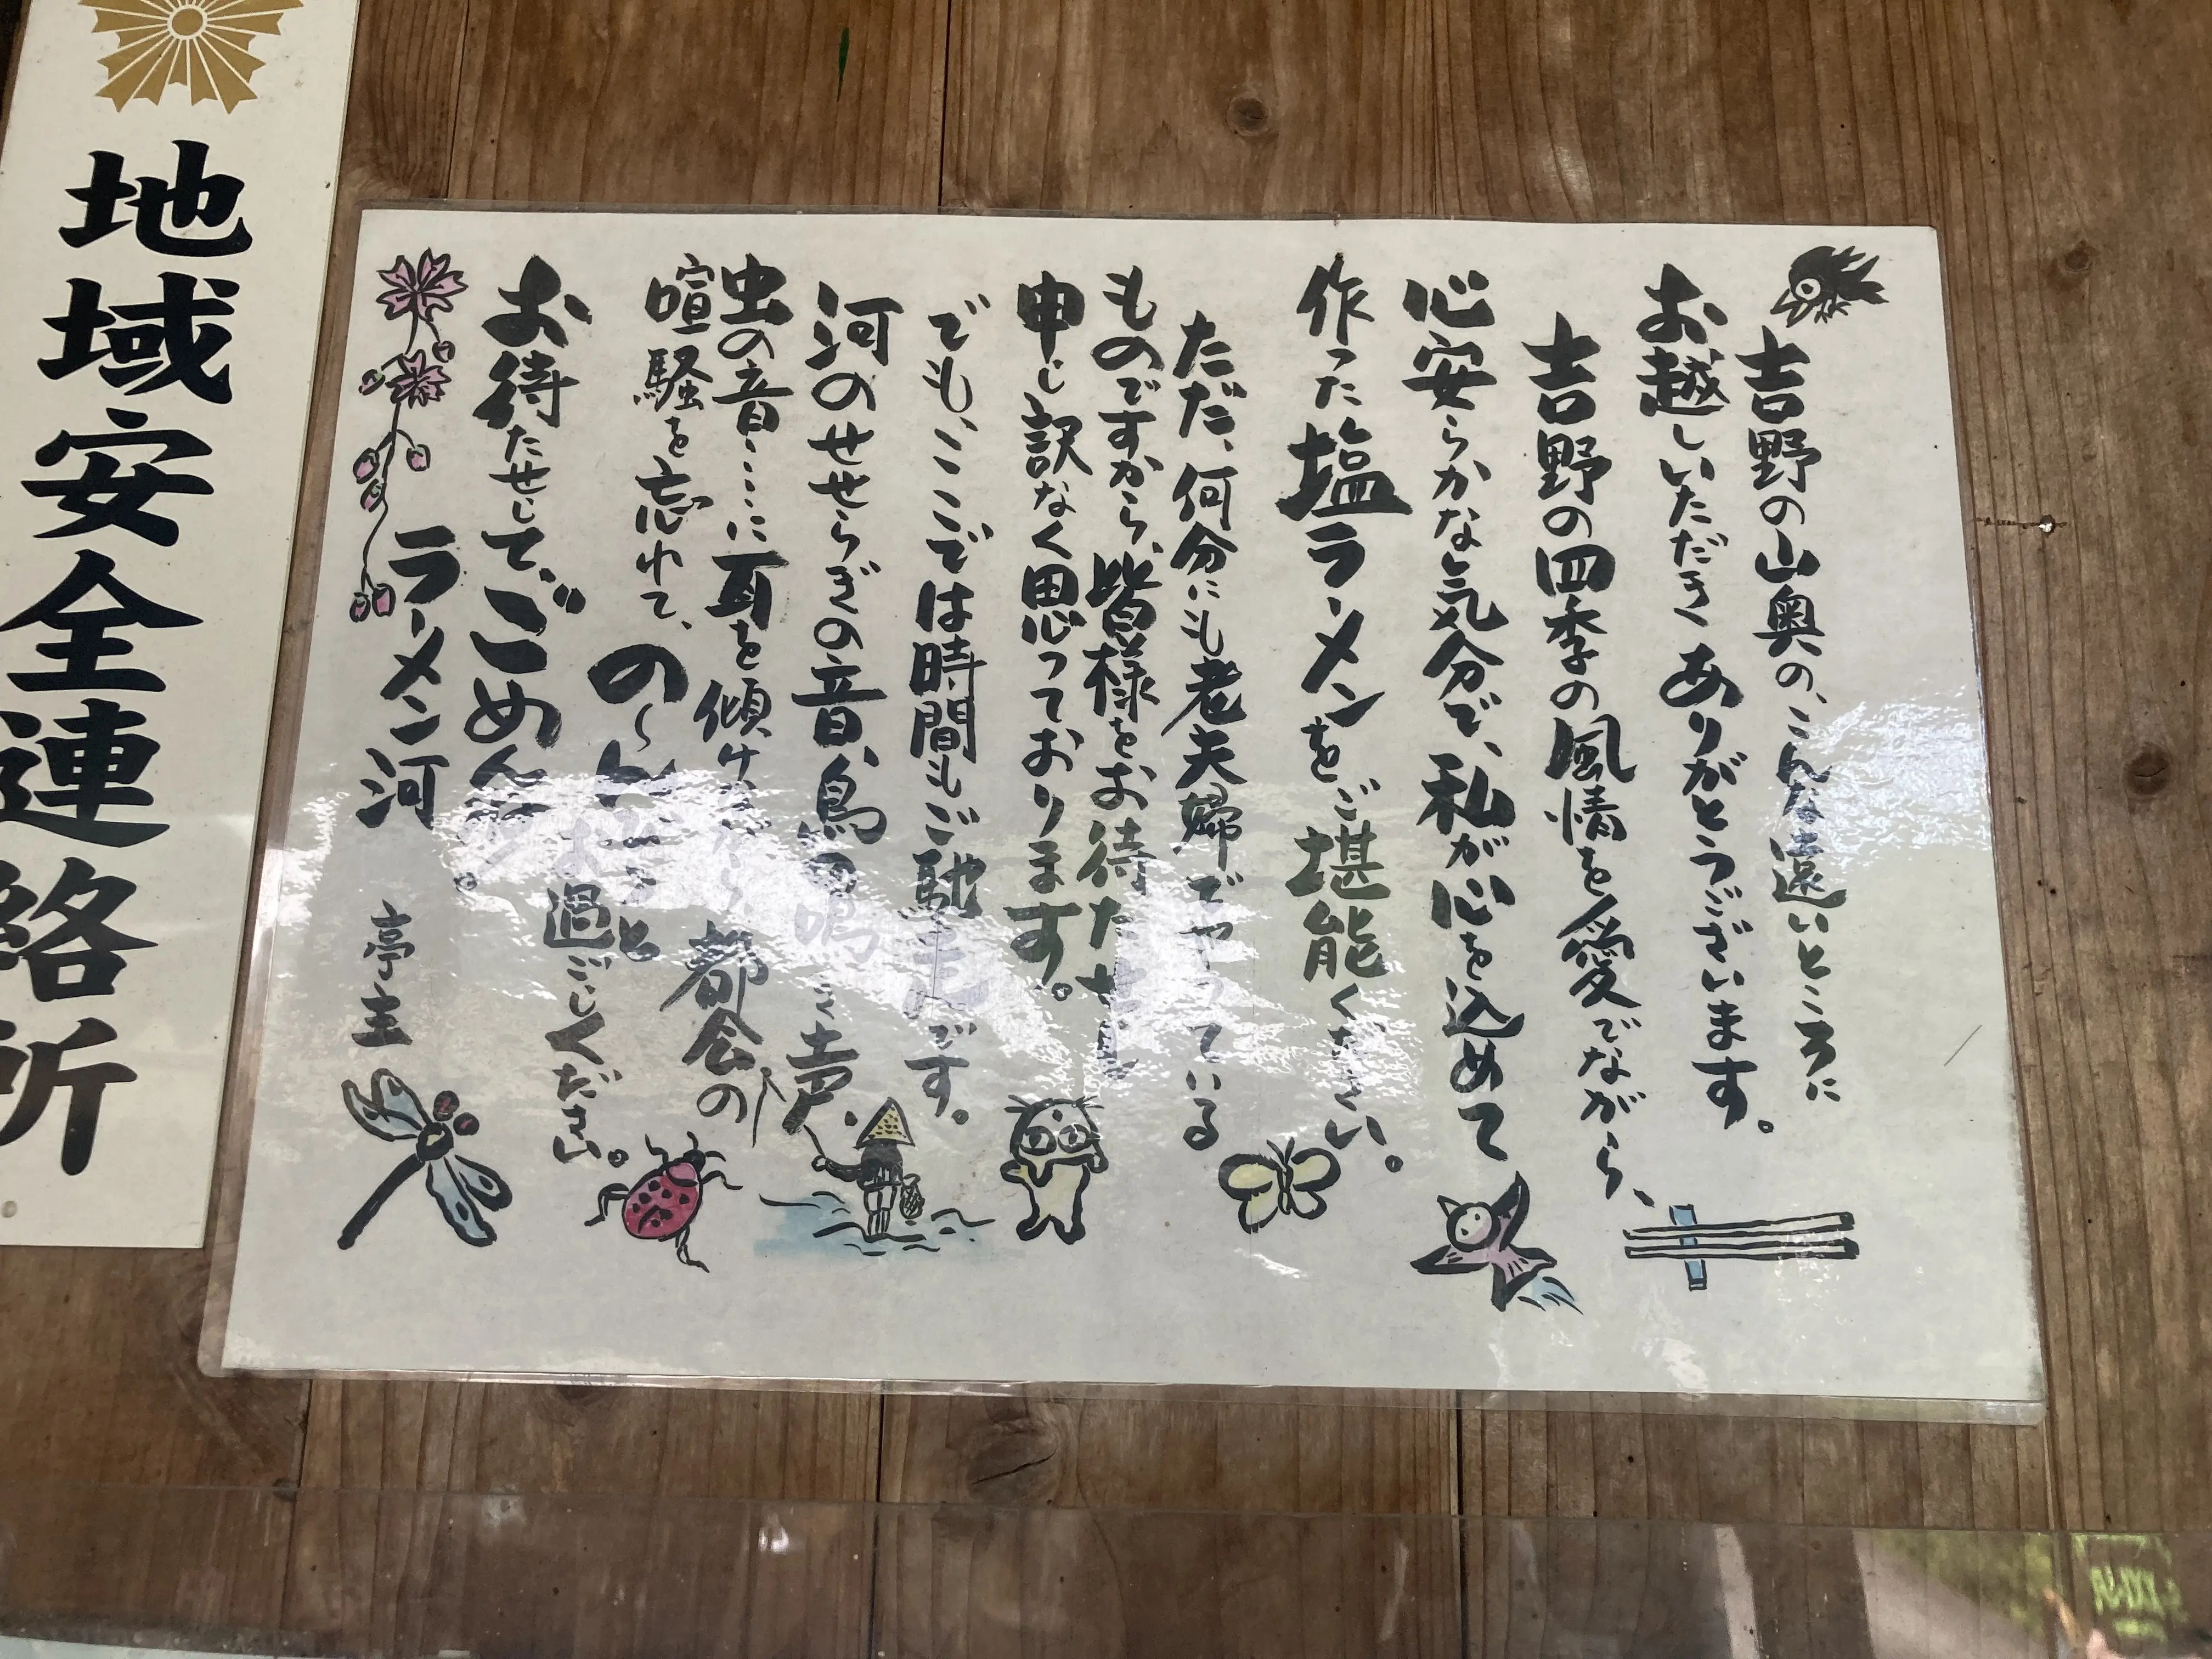 吉野の山奥の、こんな遠いところに
お越しいただきありがとうございます。
吉野の四季の風情を愛でながら、
心安らかな気分で、私が心を込めて
作った塩ラーメンをご堪能ください。
ただ、何分にも老夫婦でやっている
ものですから、皆様をお待たせし
申し訳なく思っております。
でも、ここでは時間もご馳走です。
河のせせらぎの音、鳥の鳴き声、
虫の音……に耳を傾けながら、都会の
喧騒を忘れて、の〜んびりと
お過ごしください。
お待たせして、ごめんネ。
ラーメン河 亭主
地域安全連絡所